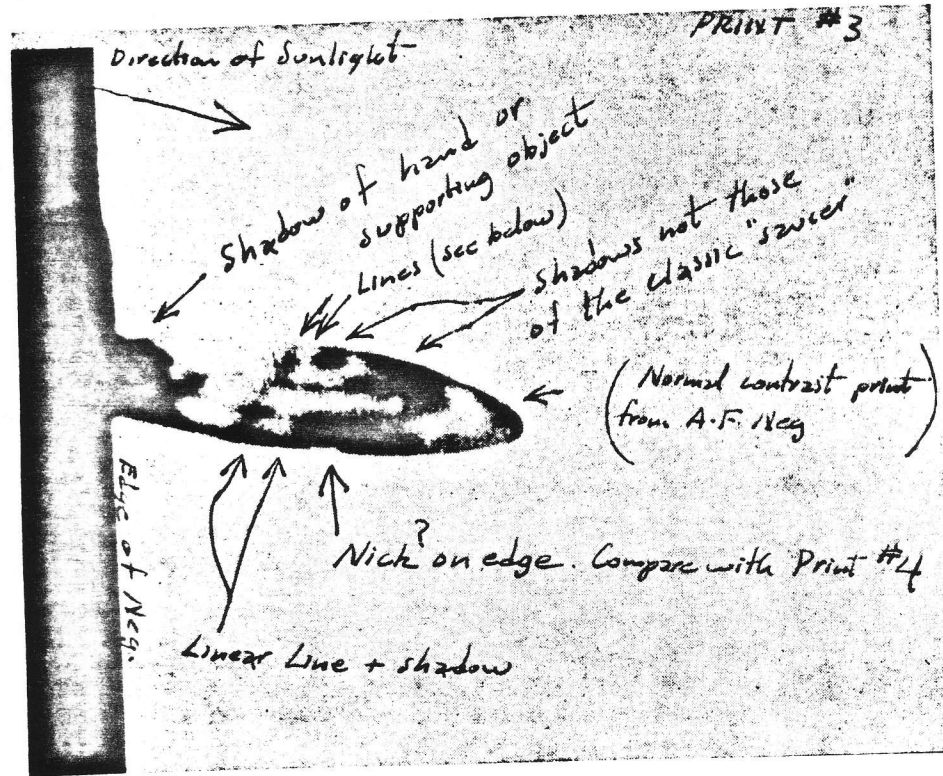 PRINT #3
Direction of Sunlight
Shadow of hand or
supporting object
Lines (see below)
Shadows not those
of the classic "saucer"
(Normal contrast print
from A.F. Neg)
Edge of Neg.
Nick? on edge. Compare with Print #4
Linear Line + shadow